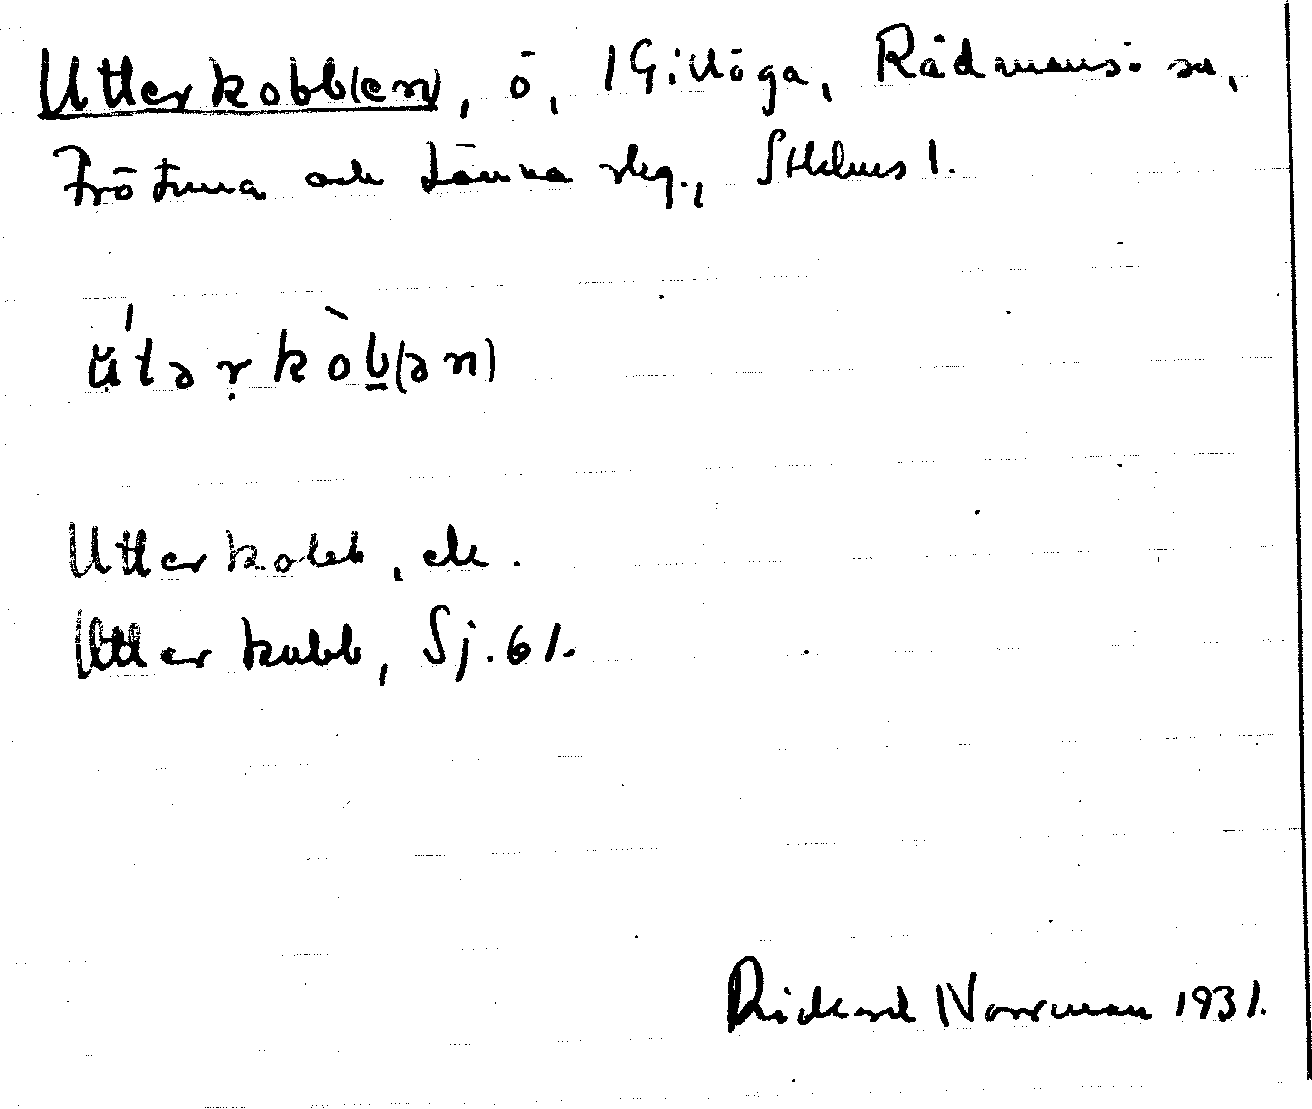 Utterkobb(en), ö, i Gillöga, Rådmansö sn,
Frötuna och Länna slg., Sthlms l.
ŭ́tərkòb(ən)
Utterkobb, ek.
Utterkubb, Sj. 61.
Rickard Norrman 1931.